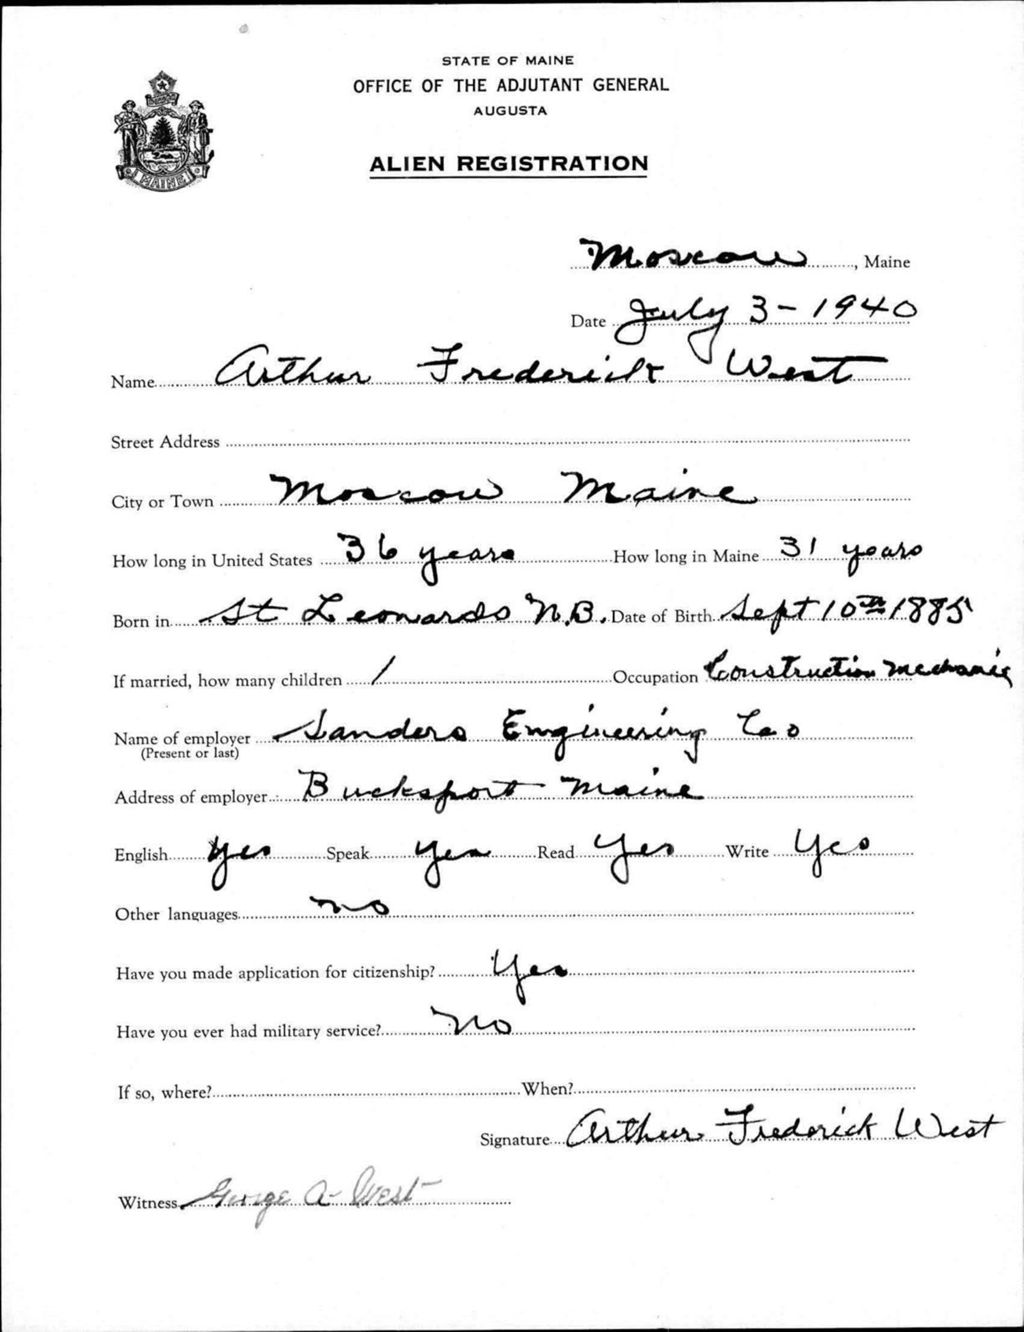 STATE OF MAINE
OFFICE OF THE ADJUTANT GENERAL
AUGUSTA
ALIEN REGISTRATION
MAINE
Moscow, Maine
Date July 3-1940
Name Arthur Frederick West
Street Address
City or Town Moscow Maine
How long in United States 36 years How long in Maine 31 years
Born in St Leonards N.B. Date of Birth Sept 10th 1885
If married, how many children 1 Occupation Construction mechanic
Name of employer Sanders Engineering Co
(Present or last)
Address of employer Bucksport Maine
English Yes Speak Yes Read Yes Write Yes
Other languages no
Have you made application for citizenship? Yes
Have you ever had military service? No
If so, where? When?
Signature Arthur Frederick West
Witness George A- West